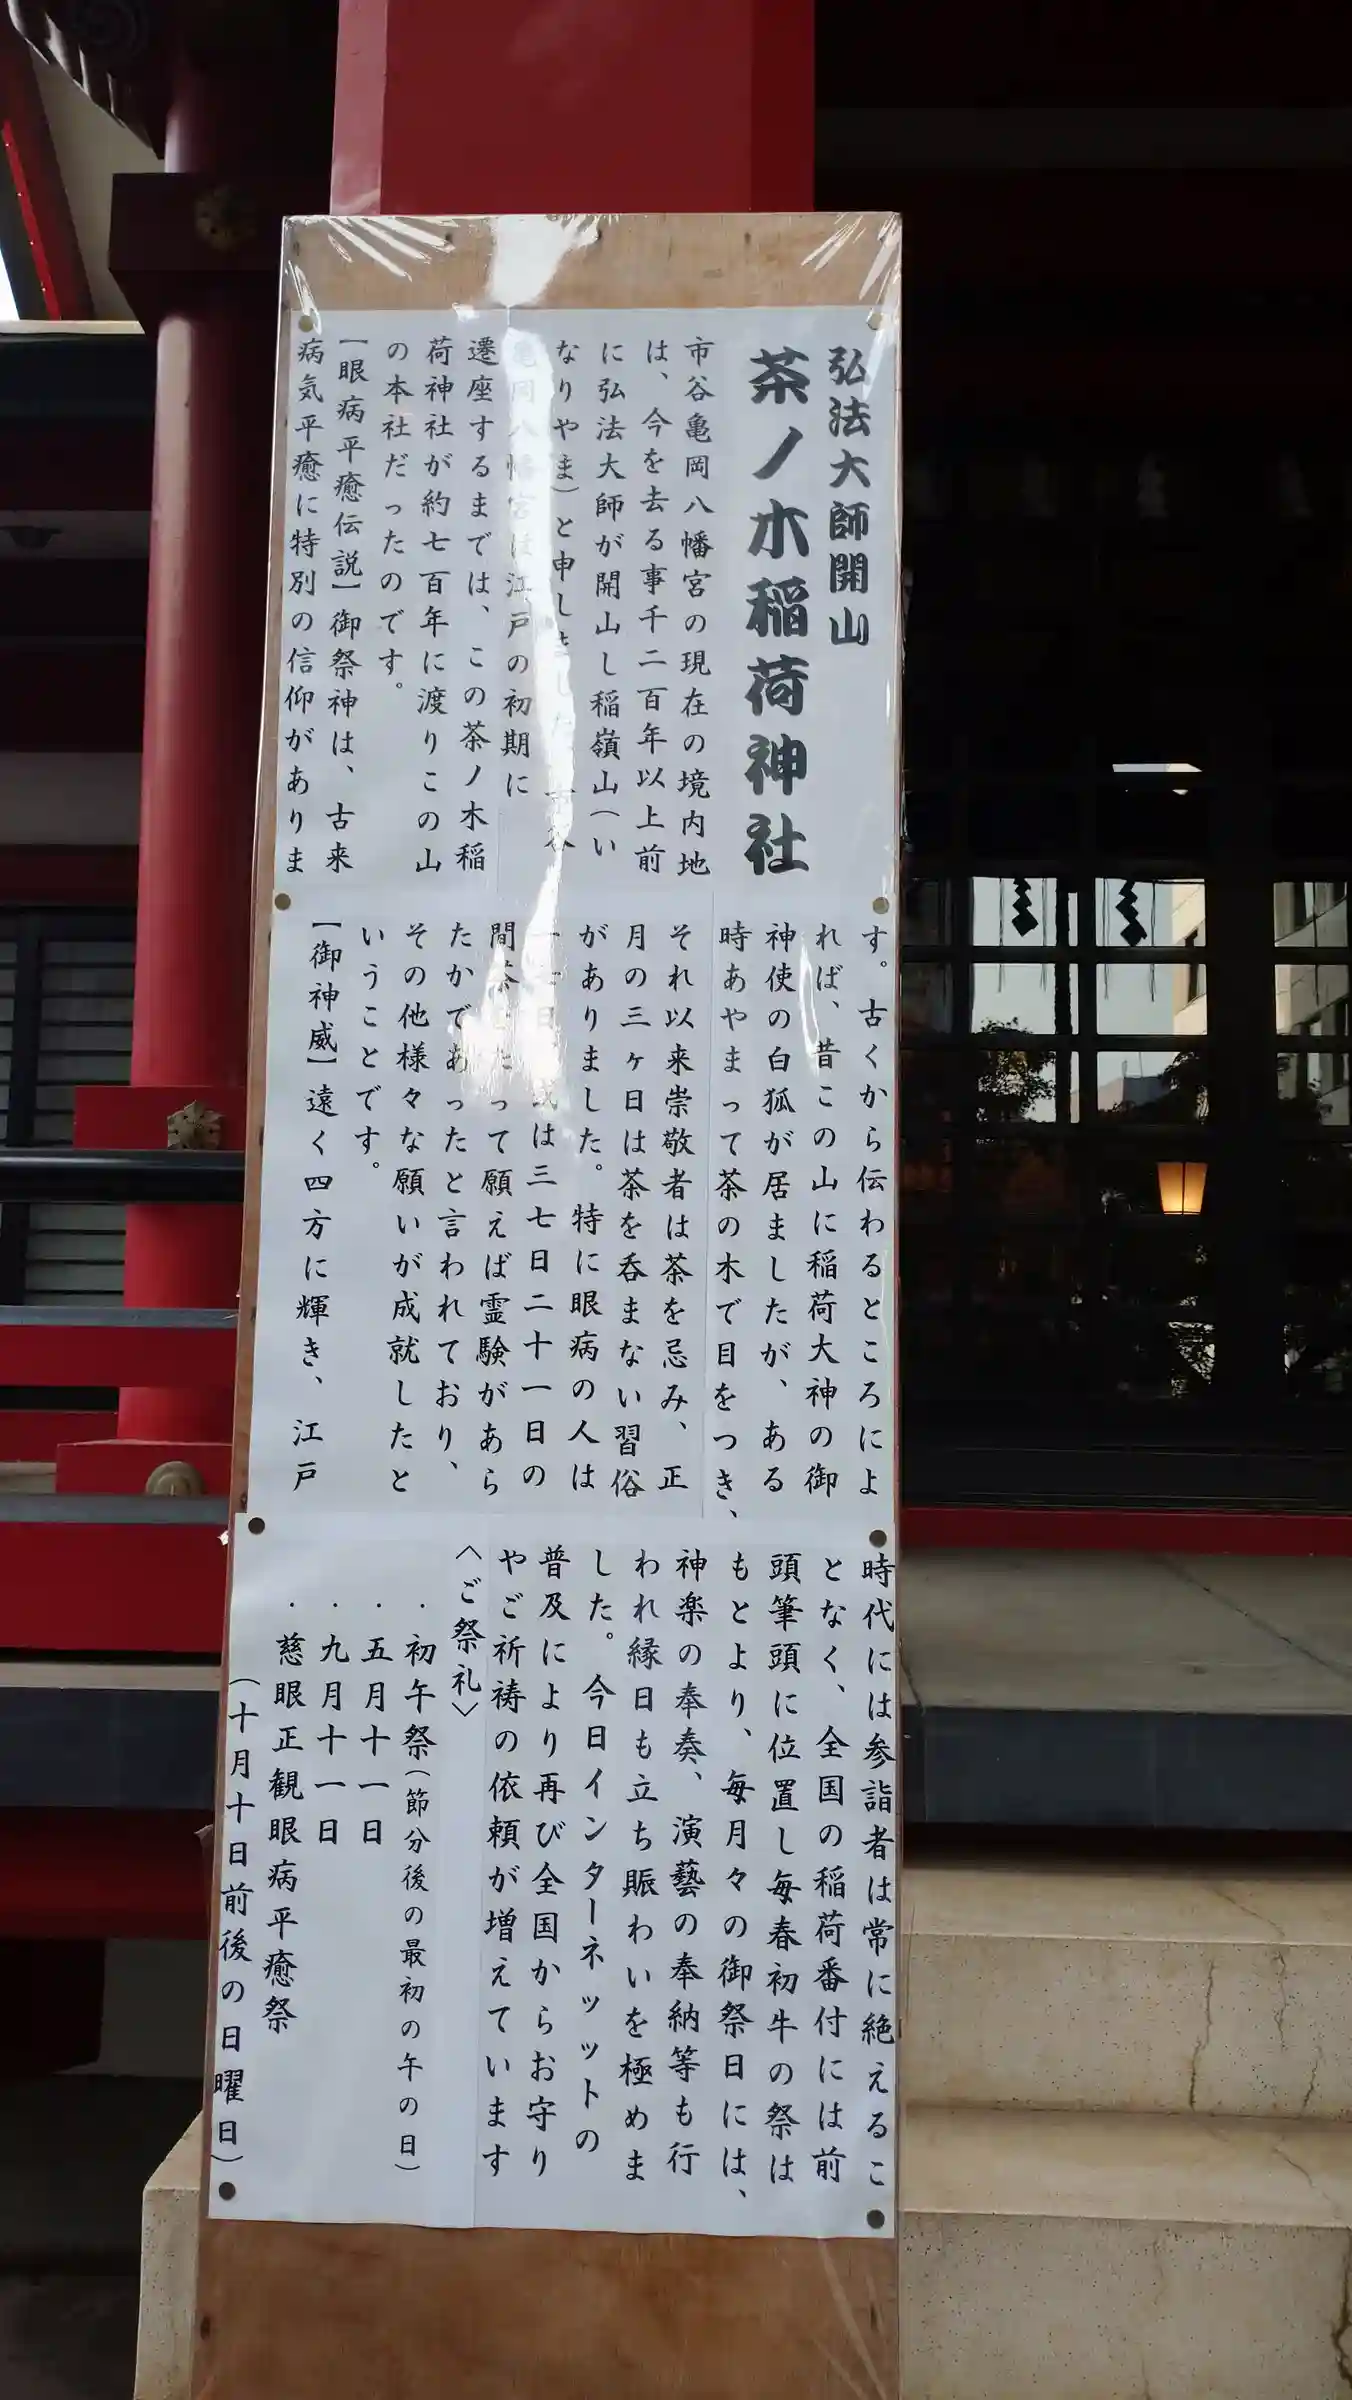 弘法大師開山
茶ノ木稲荷神社
市谷亀岡八幡宮の現在の境内地
は、今を去る事千二百年以上前
に弘法大師が開山し稲嶺山（い
なりやま）と申しました。市谷
亀岡八幡宮は江戸の初期に
遷座するまでは、この茶ノ木稲
荷神社が約七百年に渡りこの山
の本社だったのです。
【眼病平癒伝説】御祭神は、古来
病気平癒に特別の信仰がありま
す。古くから伝わるところによ
れば、昔この山に稲荷大神の御
神使の白狐が居ましたが、ある
時あやまって茶の木で目をつき、
それ以来崇敬者は茶を忌み、正
月の三ヶ日は茶を呑まない習俗
がありました。特に眼病の人は
日、或は三七日二十一日の
間茶だたって願えば霊験があら
たかであったと言われており、
その他様々な願いが成就したと
いうことです。
【御神威】遠く四方に輝き、江戸
時代には参詣者は常に絶えるこ
となく、全国の稲荷番付には前
頭筆頭に位置し毎春初牛の祭は
もとより、毎月々の御祭日には、
神楽の奉奏、演藝の奉納等も行
われ縁日も立ち賑わいを極めま
した。今日インターネットの
普及により再び全国からお守り
やご祈祷の依頼が増えています
〈ご祭礼〉
・初午祭（節分後の最初の午の日）
・五月十一日
・九月十一日
・慈眼正観眼病平癒祭
（十月十日前後の日曜日）